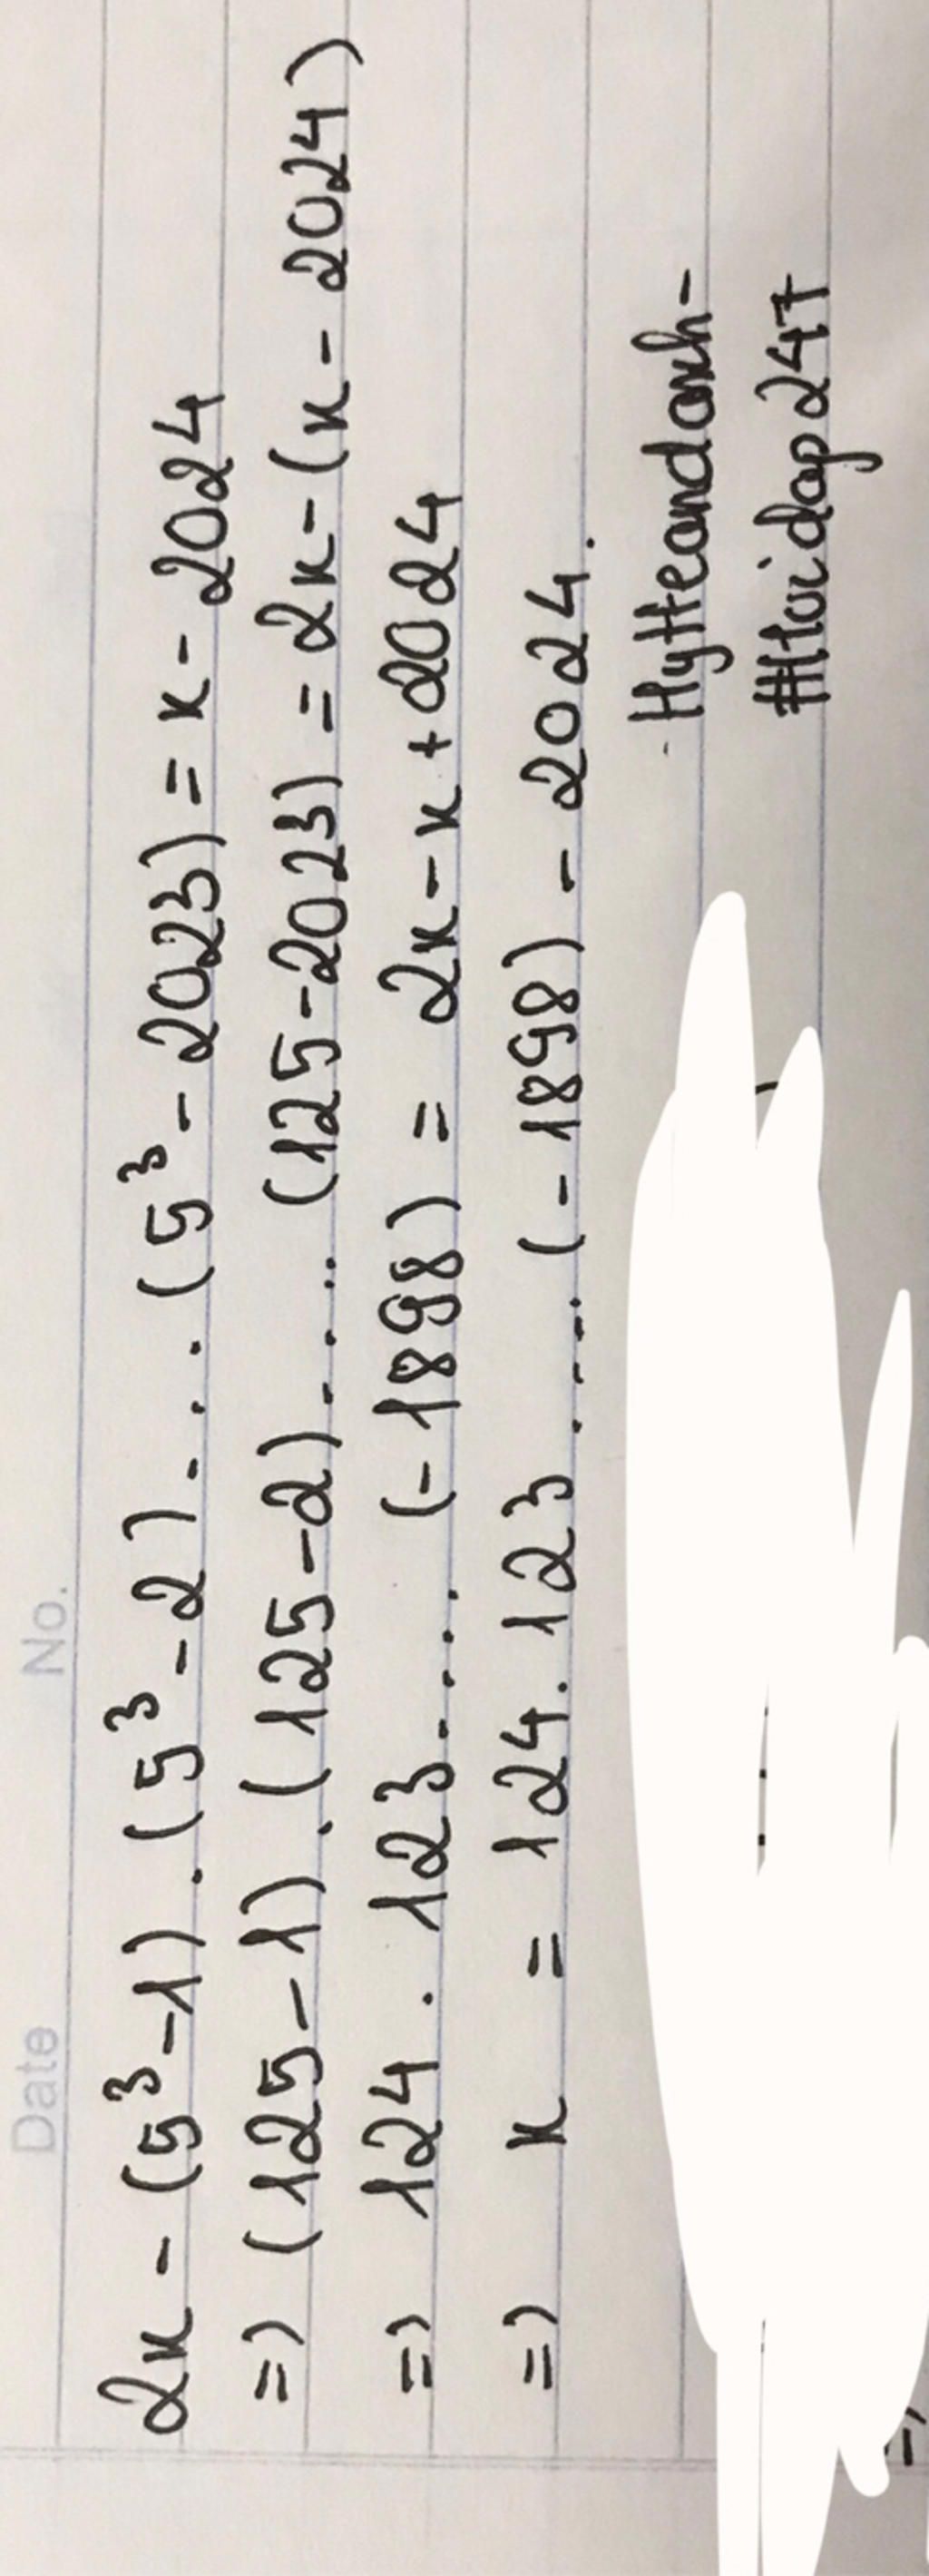 Date No.
2x - (5³-1) . (5³-2) . . . . (5³ - 2023) = x - 2024
=) (125-1) . (125-2) . . . . (125-2023) = 2x - (x - 2024)
=) 124 . 123 . . . . (-1898) = 2x - x + 2024
=) x = 124 . 123 . . . . (-1898) - 2024.
#Hoidap247